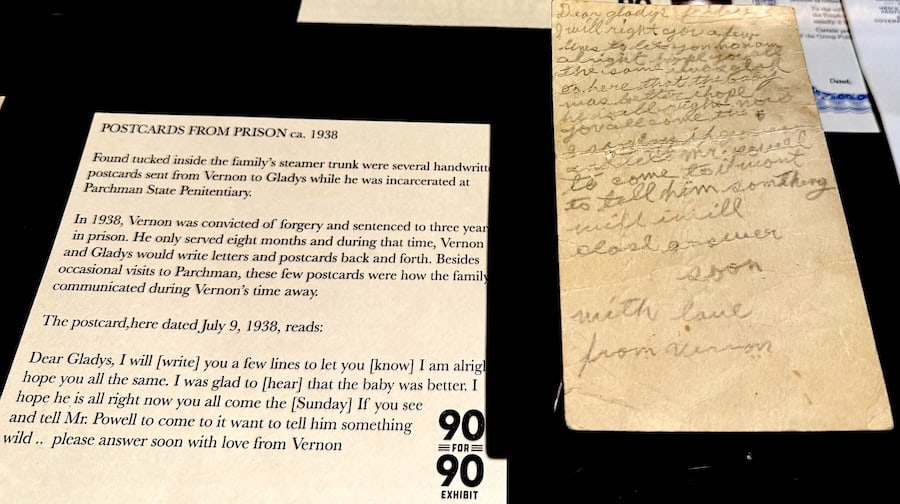 POSTCARDS FROM PRISON ca. 1938
Found tucked inside the family's steamer trunk were several handwritte
postcards sent from Vernon to Gladys while he was incarcerated at
Parchman State Penitentiary.
In 1938, Vernon was convicted of forgery and sentenced to three year
in prison. He only served eight months and during that time, Vernon
and Gladys would write letters and postcards back and forth. Besides
occasional visits to Parchman, these few postcards were how the family
communicated during Vernon's time away.
The postcard,here dated July 9, 1938, reads:
Dear Gladys, I will [write] you a few lines to let you [know] I am alrigh
hope you all the same. I was glad to [hear] that the baby was better. I
hope he is all right now you all come the [Sunday] If you see
and tell Mr. Powell to come to it want to tell him something
wild .. please answer soon with love from Vernon
90
FOR
90
EXHIBIT
Dear gladys
I will right you a few
lines to let you no I am
alright hope you all
the same i was glad
to here that the baby
was better i hope
he is all right now
you all come the
to come to i wont
to tell him something
will
answer
soon
with love
from vernon
Dated,